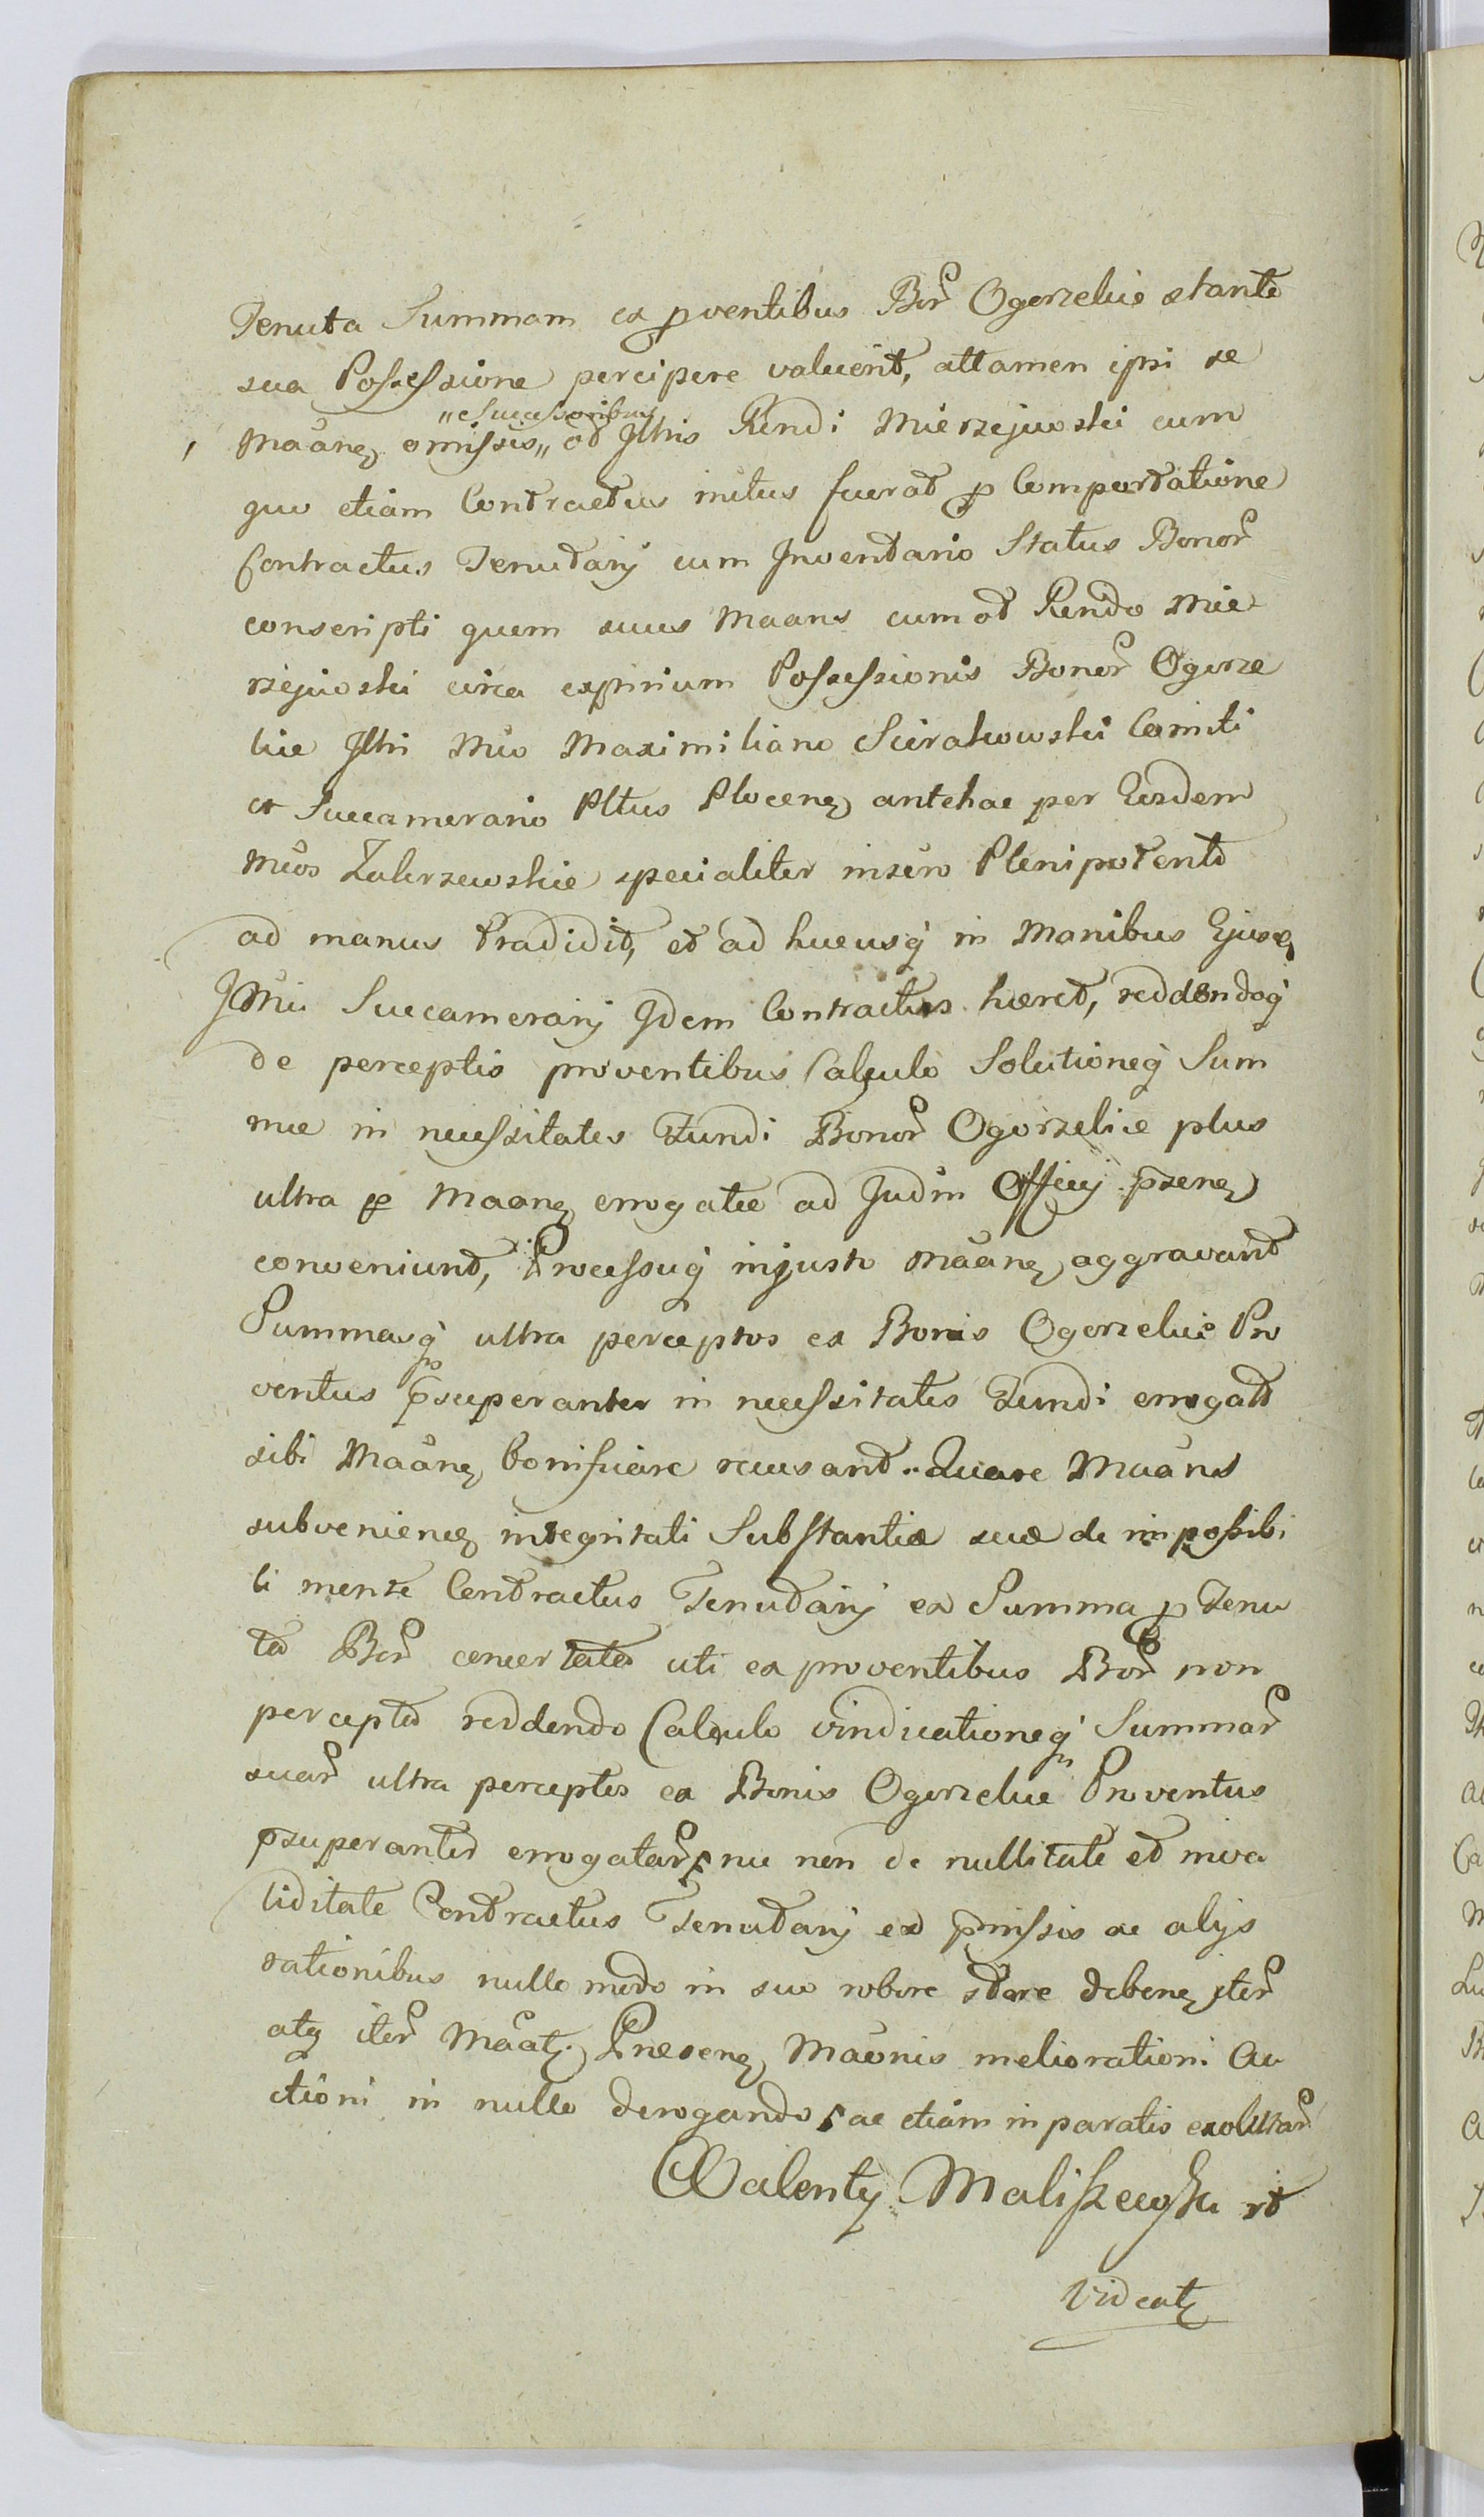 Tenuta Summam ex pventibus Bor Ogorzelice stante
sua Possessione percipere valuerit, attamen ipsi se
„Successoribus„
Maane omissis„ od Illris Rendi Mierzejewski cum
quo etiam Contractus initus fuerat p Comportatione
Contractus Tenutarij cum Inventario Status Bonor
conscripti quem suus Maans cum od Rendo Mie
rzejewski circa expirium Possessionis Bonor Ogorze
lice Illri Mco Maximiliano Sierakowski Comiti
et Succamerario Pltus Plocene antehac per Eosdem
Mcos Zakrzewskie specialiter inscro Plenipotenti
ad manus tradidit, et ad hucusq in Manibus Ejusq
IMci Succamerarij Idem Contractus hæret, reddendoq
de perceptis proventibus Calculo Solutioneq Sum
mæ in necessitates Fundi Bonor Ogorzelice plus
ultra p Maane errogatæ ad Judm Officij psene
conveniunt, Processuq injusto Maane aggravant
Summasq ultra perceptos ex Bonis Ogorzelice Pro
ventus psuperanter in necessitates Fundi errogat
sibi Maane bonificare recusant. Quare Maans
subveniene integritati Substantiæ suæ de impossibi
li mente Contractus Tenutarij ex Summa p Tenu
ta Bor concertata uti ex proventibus Bor non
percepta reddendo Calculo vindicationeq Summar
suar ultra perceptos ex Bonis Ogorzelice Proventus
psuperanter errogatar, nec non de nullitate et inva
liditate Contractus Tenutarij ex pmissis ac alijs
rationibus nullo modo in suo robore stare debene iter
atq iter Maat. Præsene Maonis meliorationi Au
ctioni in nullo derogando, ac etiam in paratis exolutar
Walenty Maliszewski rt
Videat